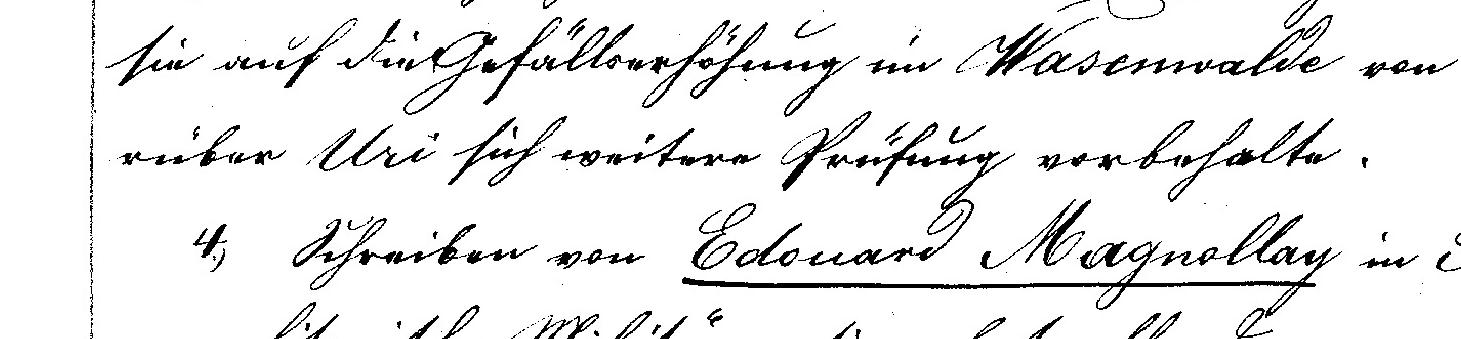 sie auf die Gefällserhöhung im Wasenwalde von
rüber Uri sich weitere Prüfung vorbehalte.
4.) Schreiben von Edouard Magnollay in